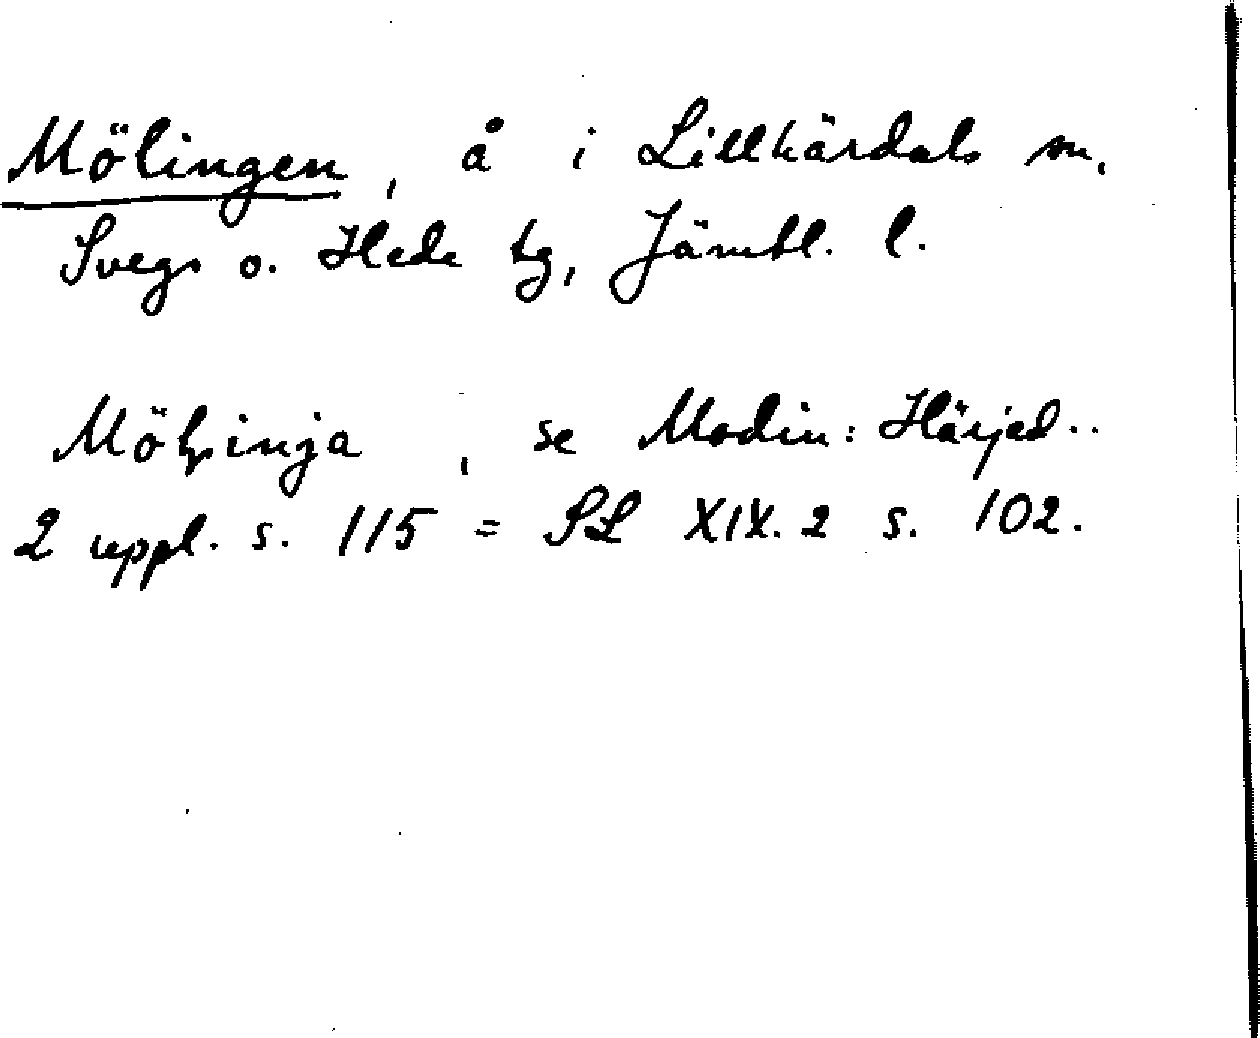 Mölingen, å i Lillhärdals sn,
Svegs o. Hede tg, Jämtl. l.
Möljinja, se Modin: Härjed..
2 uppl. s. 115 = SL XIX. 2 s. 102.